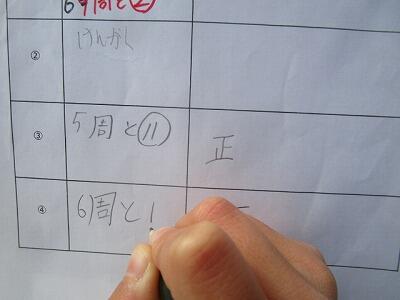 6周と②
②
けんがく
③
5周と⑪
正
④
6周と1